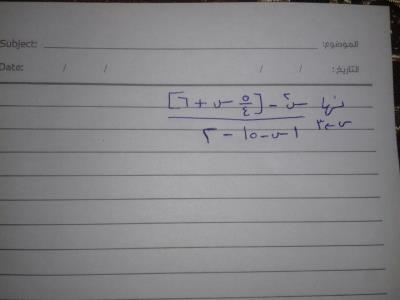 Subject: الموضوع:
Date: / / / / التاريخ:
نها س٢ - [٥/٤ س + ٦]
س←٣ |س - ٥| - ٢